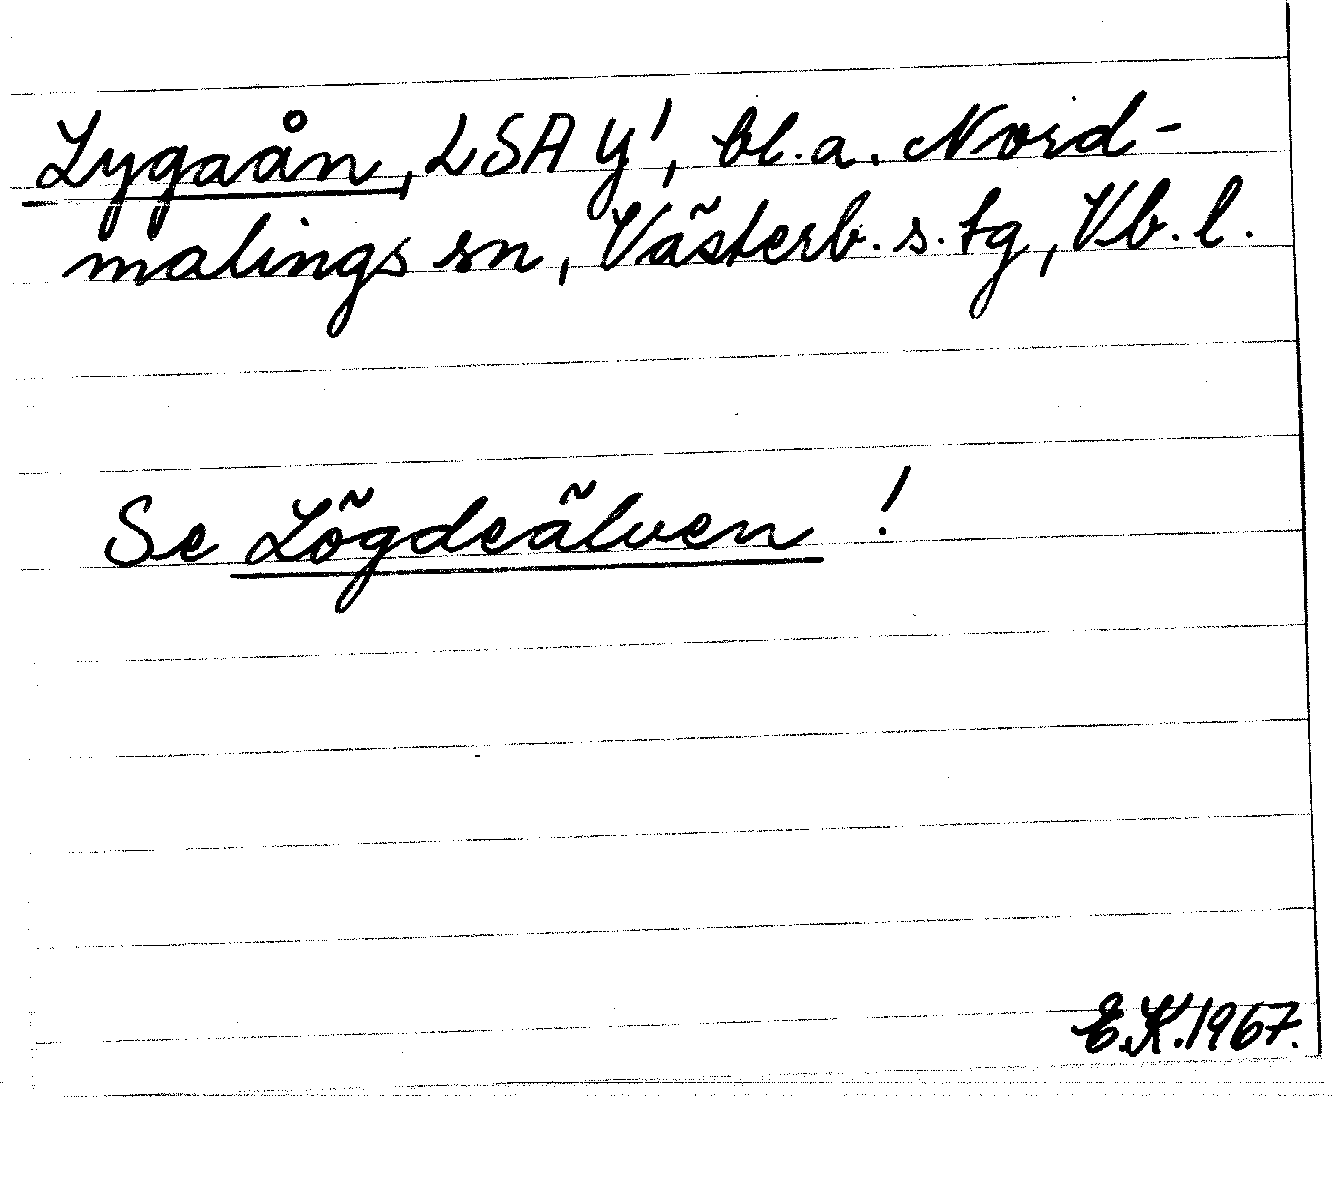 Lygaån, LSA Y', bl.a. Nord-
malings sn, Västerb. s. tg, Vb. l.
Se Lögdeälven !
E.K.1967.